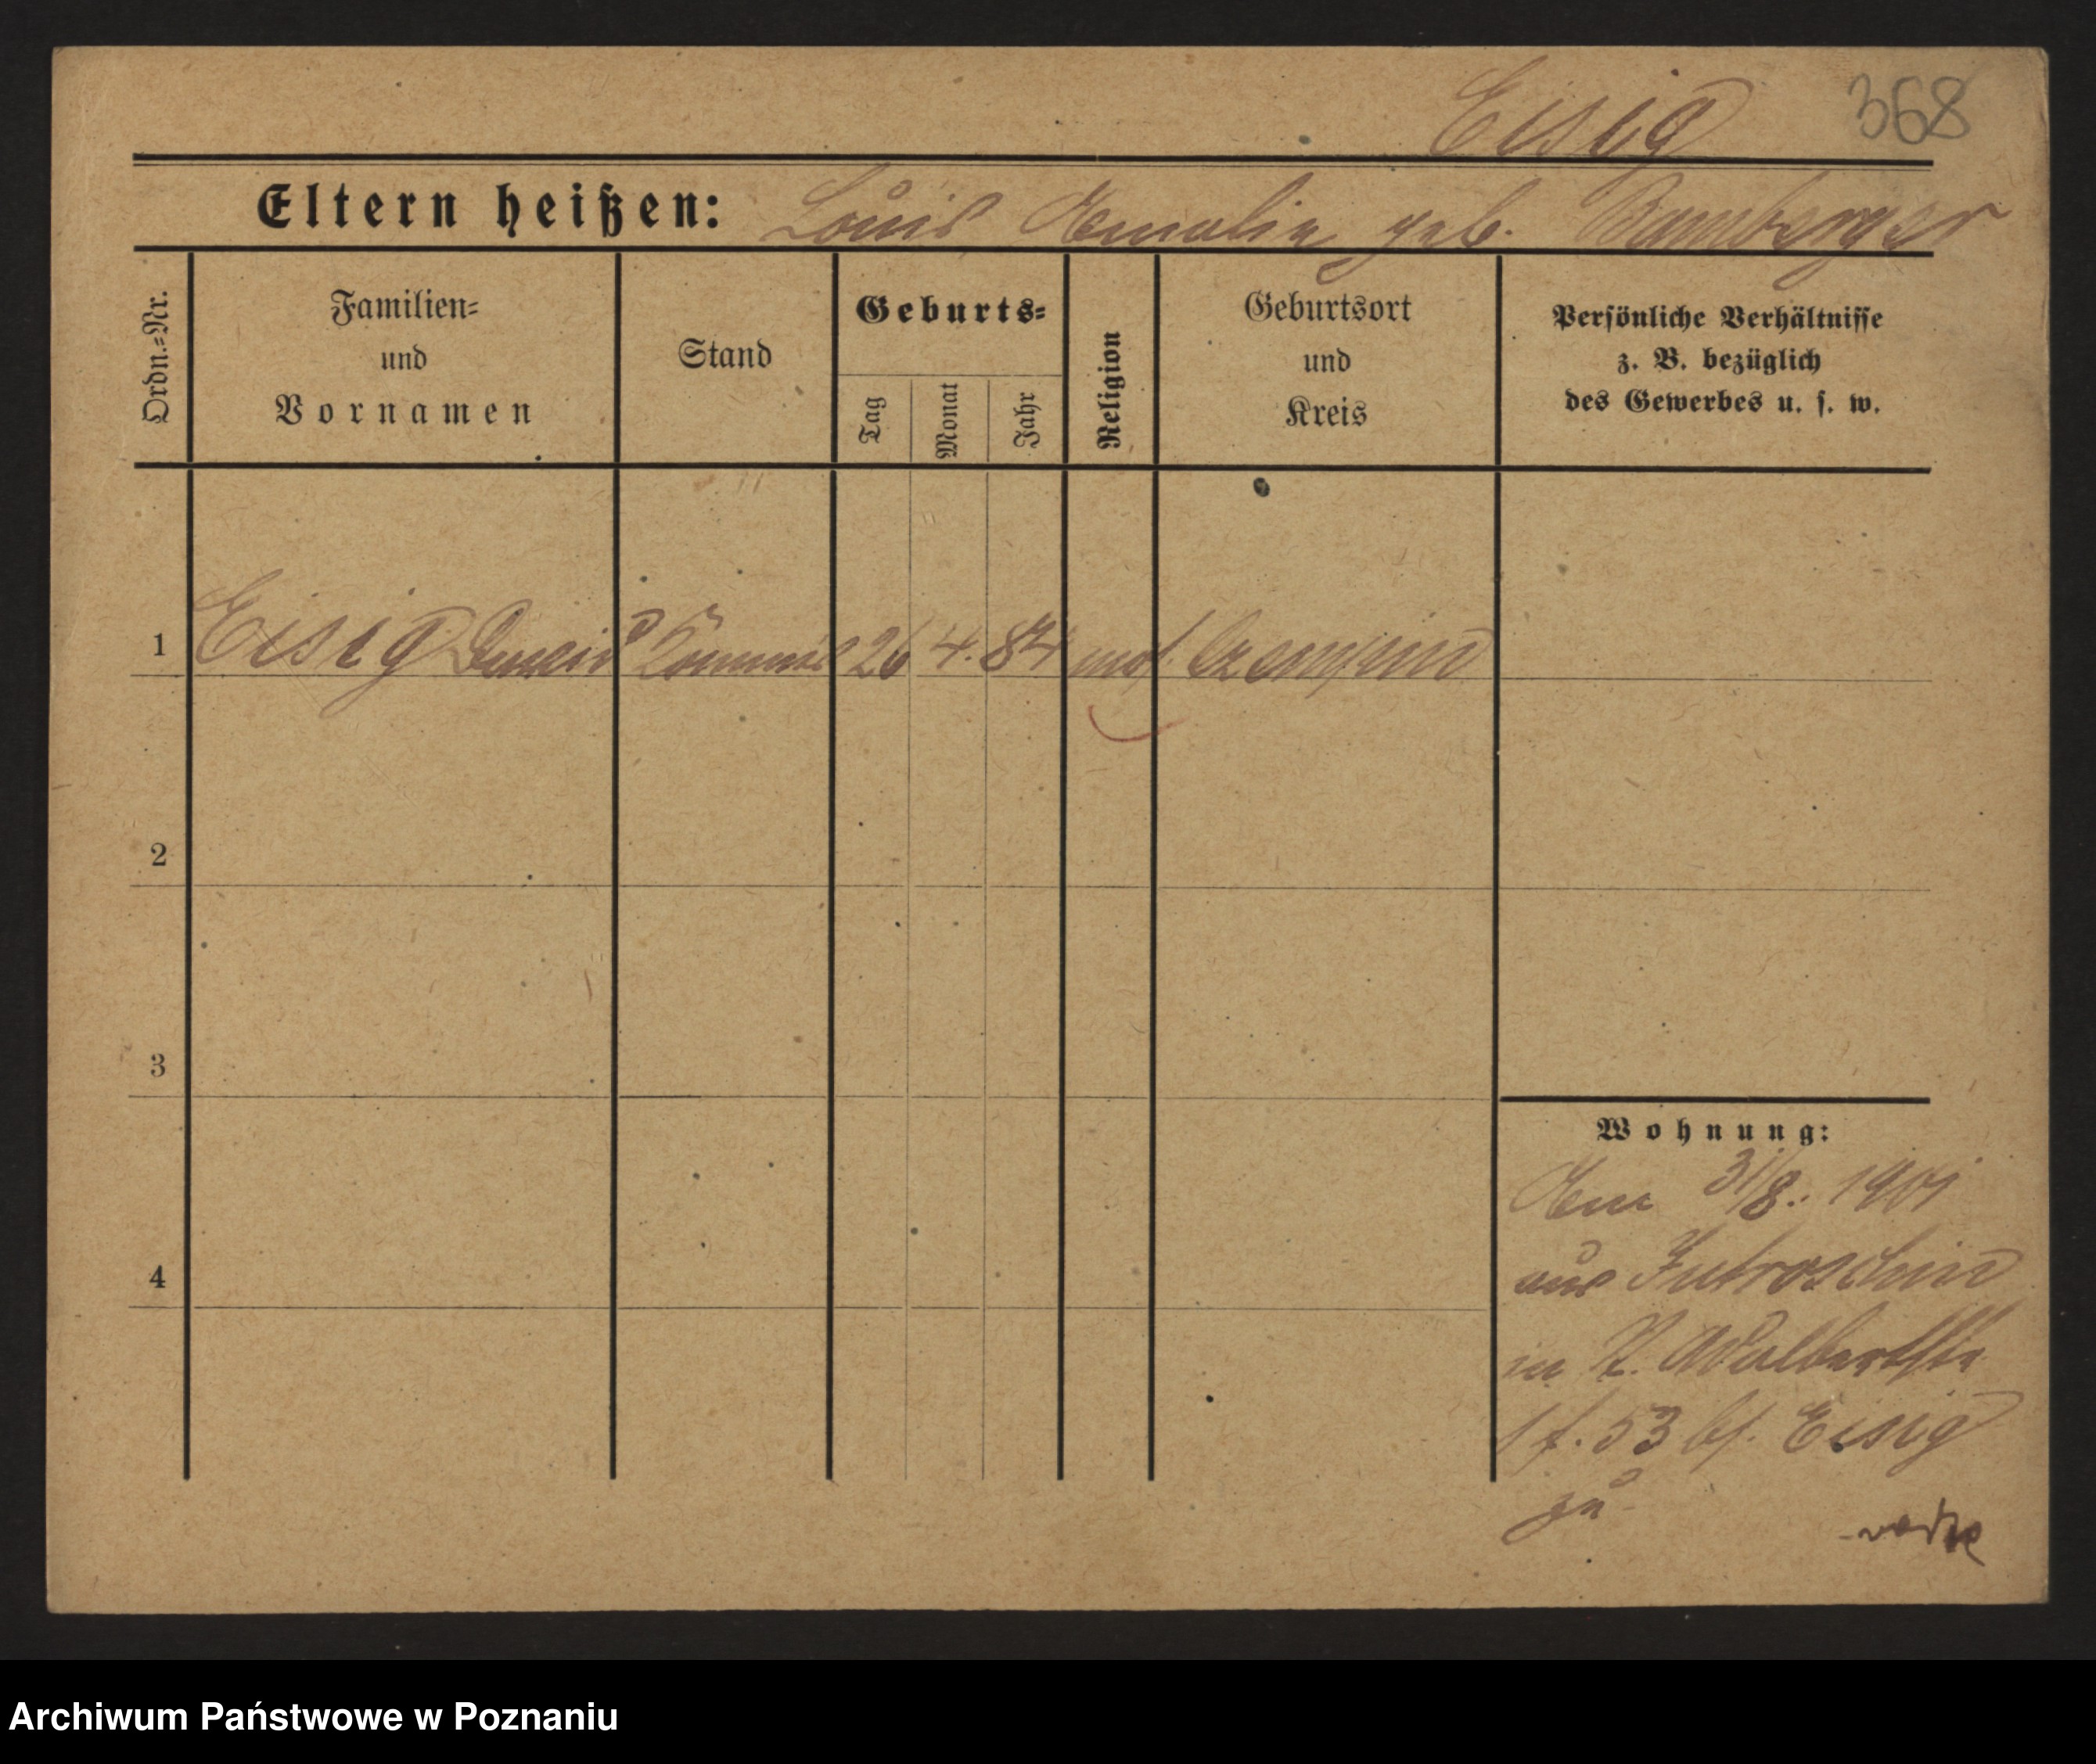 Eisig 368
Eltern heißen: Louis Amalie geb. Bamberger
Ordn.-Nr.
Familien-
und
Vornamen
Stand
Geburts-
Tag
Monat
Jahr
Religion
Geburtsort
und
Kreis
Persönliche Verhältnisse
z. B. bezüglich
des Gewerbes u. s. w.
1 Eisig David Commis 26 4. 84 mos.
2
3
4
Wohnung:
Am 31/8. 1901
aus Jutroschin
in Adalbertstr
53 bei Eisig
zu
Archiwum Państwowe w Poznaniu